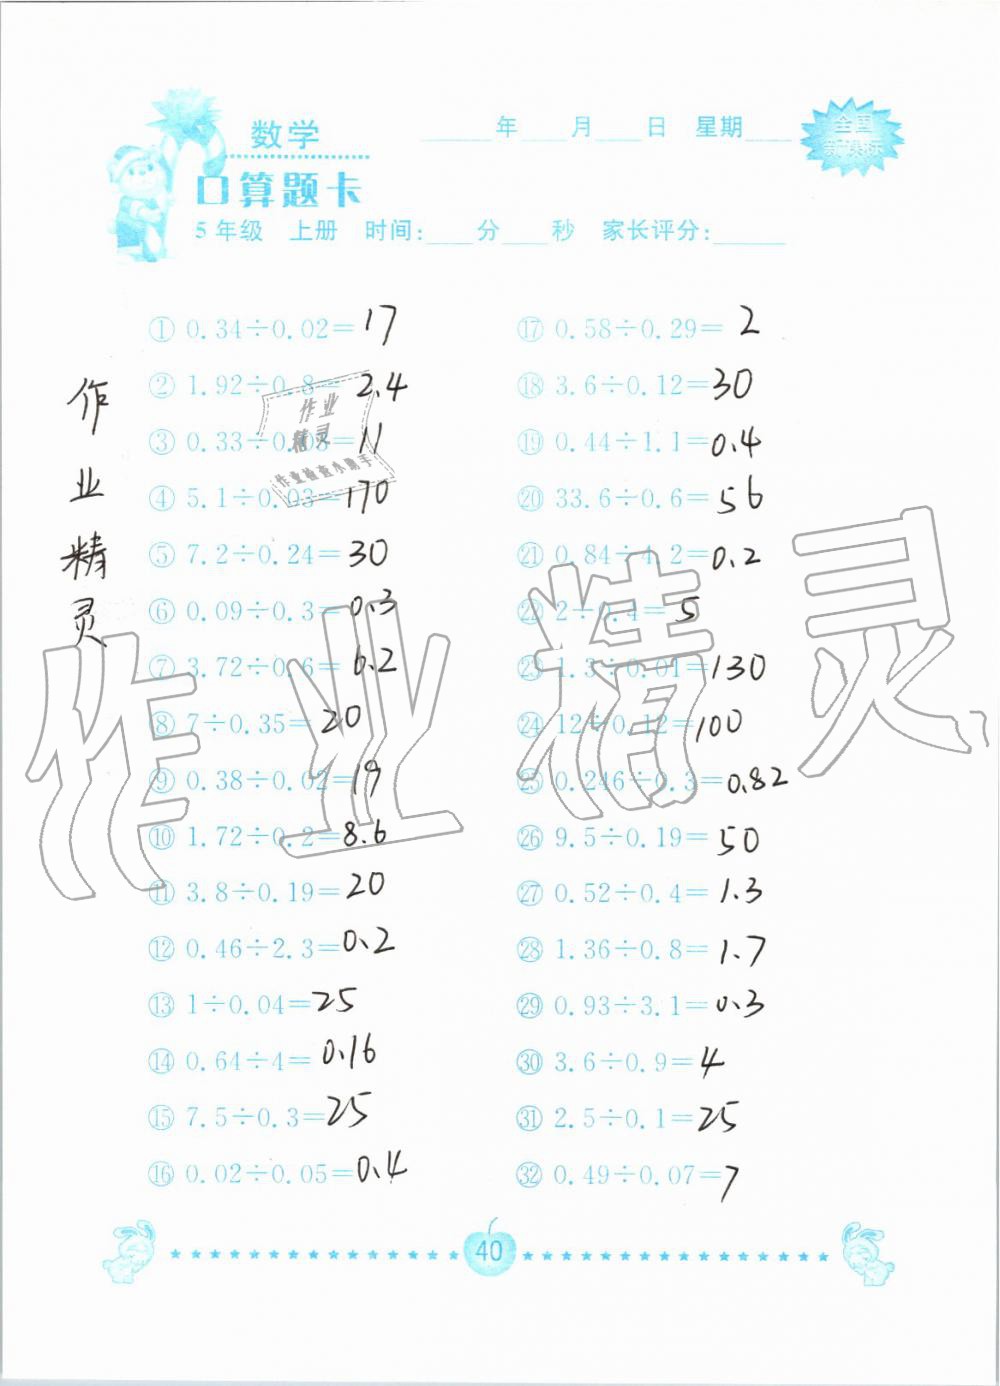 数学
____年____月____日 星期____
全国
新课标
口算题卡
5年级 上册 时间:____分____秒 家长评分:______
① 0.34÷0.02=17
② 1.92÷0.8=2.4
③ 0.33÷0.03=11
④ 5.1÷0.03=170
⑤ 7.2÷0.24=30
⑥ 0.09÷0.3=0.3
⑦ 3.72÷0.6=6.2
⑧ 7÷0.35=20
⑨ 0.38÷0.02=19
⑩ 1.72÷0.2=8.6
⑪ 3.8÷0.19=20
⑫ 0.46÷2.3=0.2
⑬ 1÷0.04=25
⑭ 0.64÷4=0.16
⑮ 7.5÷0.3=25
⑯ 0.02÷0.05=0.4
⑰ 0.58÷0.29=2
⑱ 3.6÷0.12=30
⑲ 0.44÷1.1=0.4
⑳ 33.6÷0.6=56
㉑ 0.84÷4.2=0.2
㉒ 2÷0.4=5
㉓ 1.3÷0.01=130
㉔ 12÷0.12=100
㉕ 0.246÷0.3=0.82
㉖ 9.5÷0.19=50
㉗ 0.52÷0.4=1.3
㉘ 1.36÷0.8=1.7
㉙ 0.93÷3.1=0.3
㉚ 3.6÷0.9=4
㉛ 2.5÷0.1=25
㉜ 0.49÷0.07=7
作业精灵
作业
精灵
作业检查小助手
作业精灵
40